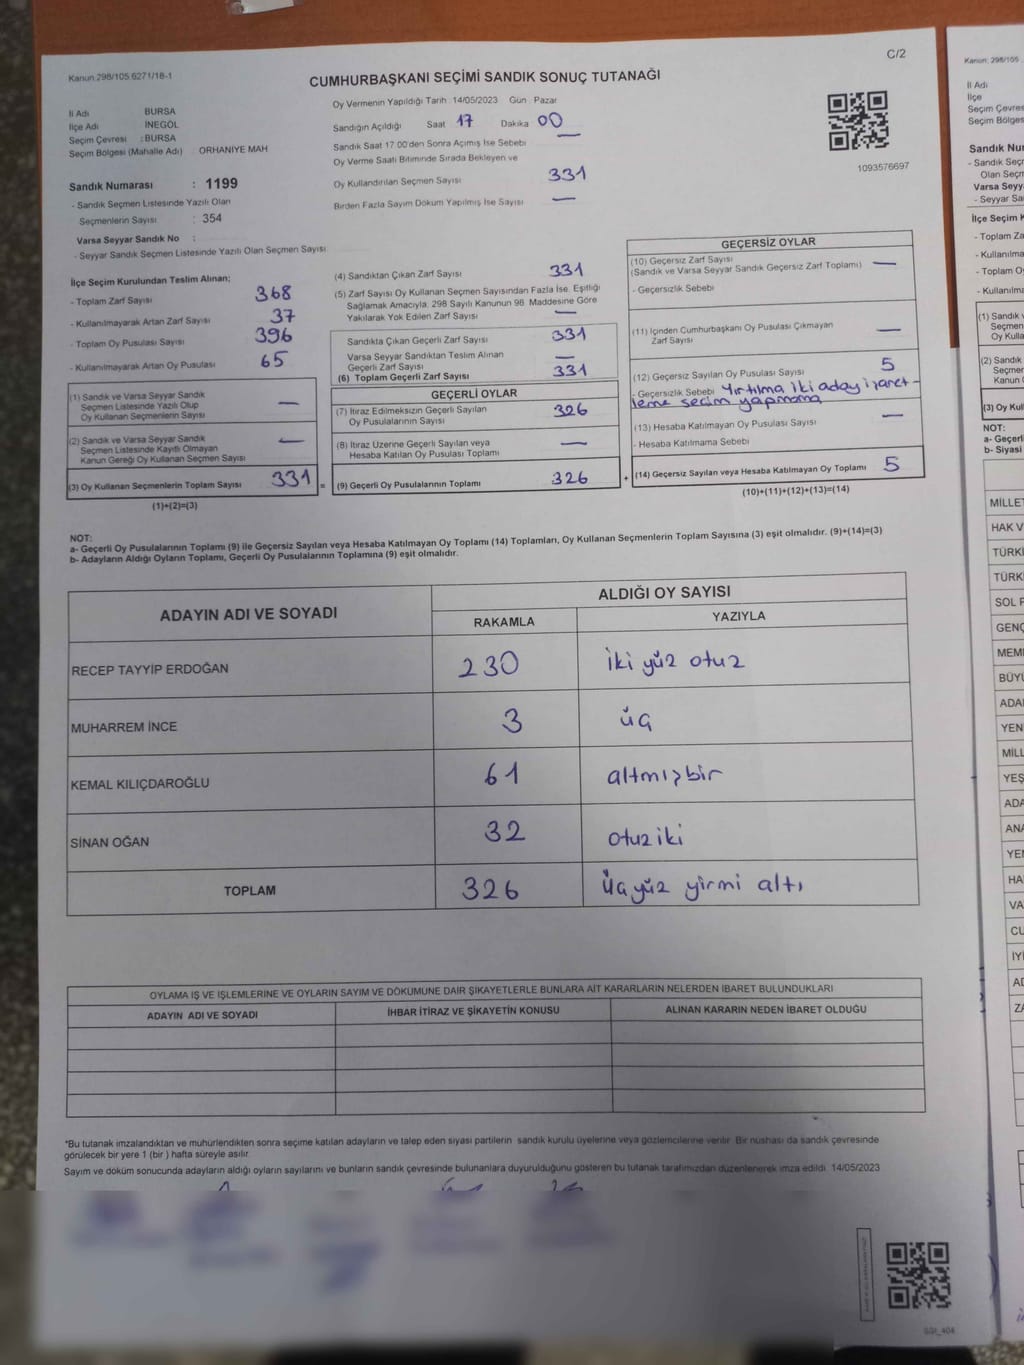 C/2
Kanun 298/105 6271/18-1
CUMHURBAŞKANI SEÇİMİ SANDIK SONUÇ TUTANAĞI
İl Adı BURSA
İlçe Adı İNEGÖL
Seçim Çevresi : BURSA
Seçim Bölgesi (Mahalle Adı) ORHANİYE MAH
Sandık Numarası : 1199
- Sandık Seçmen Listesinde Yazılı Olan
Seçmenlerin Sayısı : 354
Varsa Seyyar Sandık No :
- Seyyar Sandık Seçmen Listesinde Yazılı Olan Seçmen Sayısı
Oy Vermenin Yapıldığı Tarih : 14/05/2023 Gün : Pazar
Sandığın Açıldığı Saat 17 Dakika 00
Sandık Saat 17.00'den Sonra Açılmış İse Sebebi —
Oy Verme Saati Bitiminde Sırada Bekleyen ve
Oy Kullandırılan Seçmen Sayısı 331
Birden Fazla Sayım Döküm Yapılmış İse Sayısı —
1093576697
İlçe Seçim Kurulundan Teslim Alınan;
- Toplam Zarf Sayısı 368
- Kullanılmayarak Artan Zarf Sayısı 37
- Toplam Oy Pusulası Sayısı 396
- Kullanılmayarak Artan Oy Pusulası 65
(1) Sandık ve Varsa Seyyar Sandık
Seçmen Listesinde Yazılı Olup
Oy Kullanan Seçmenlerin Sayısı —
(2) Sandık ve Varsa Seyyar Sandık
Seçmen Listesinde Kayıtlı Olmayan
Kanun Gereği Oy Kullanan Seçmen Sayısı —
(3) Oy Kullanan Seçmenlerin Toplam Sayısı 331 =
(1)+(2)=(3)
(4) Sandıktan Çıkan Zarf Sayısı 331
(5) Zarf Sayısı Oy Kullanan Seçmen Sayısından Fazla İse, Eşitliği
Sağlamak Amacıyla, 298 Sayılı Kanunun 98. Maddesine Göre
Yakılarak Yok Edilen Zarf Sayısı —
Sandıkta Çıkan Geçerli Zarf Sayısı 331
Varsa Seyyar Sandıktan Teslim Alınan
Geçerli Zarf Sayısı —
(6) Toplam Geçerli Zarf Sayısı 331
GEÇERLİ OYLAR
(7) İtiraz Edilmeksizin Geçerli Sayılan
Oy Pusulalarının Sayısı 326
(8) İtiraz Üzerine Geçerli Sayılan veya
Hesaba Katılan Oy Pusulası Toplamı —
(9) Geçerli Oy Pusulalarının Toplamı 326 +
GEÇERSİZ OYLAR
(10) Geçersiz Zarf Sayısı —
(Sandık ve Varsa Seyyar Sandık Geçersiz Zarf Toplamı)
- Geçersizlik Sebebi
(11) İçinden Cumhurbaşkanı Oy Pusulası Çıkmayan
Zarf Sayısı —
(12) Geçersiz Sayılan Oy Pusulası Sayısı 5
- Geçersizlik Sebebi Yırtılma iki aday işaret-
leme seçim yapmama
(13) Hesaba Katılmayan Oy Pusulası Sayısı —
- Hesaba Katılmama Sebebi
(14) Geçersiz Sayılan veya Hesaba Katılmayan Oy Toplamı 5
(10)+(11)+(12)+(13)=(14)
NOT:
a- Geçerli Oy Pusulalarının Toplamı (9) ile Geçersiz Sayılan veya Hesaba Katılmayan Oy Toplamı (14) Toplamları, Oy Kullanan Seçmenlerin Toplam Sayısına (3) eşit olmalıdır. (9)+(14)=(3)
b- Adayların Aldığı Oyların Toplamı, Geçerli Oy Pusulalarının Toplamına (9) eşit olmalıdır.
ADAYIN ADI VE SOYADI ALDIĞI OY SAYISI
RAKAMLA YAZIYLA
RECEP TAYYİP ERDOĞAN 230 iki yüz otuz
MUHARREM İNCE 3 üç
KEMAL KILIÇDAROĞLU 61 altmışbir
SİNAN OĞAN 32 otuz iki
TOPLAM 326 üçyüz yirmi altı
OYLAMA İŞ VE İŞLEMLERİNE VE OYLARIN SAYIM VE DÖKÜMÜNE DAİR ŞİKAYETLERLE BUNLARA AİT KARARLARIN NELERDEN İBARET BULUNDUKLARI
ADAYIN ADI VE SOYADI İHBAR İTİRAZ VE ŞİKAYETİN KONUSU ALINAN KARARIN NEDEN İBARET OLDUĞU
*Bu tutanak imzalandıktan ve mühürlendikten sonra seçime katılan adayların ve talep eden siyasi partilerin sandık kurulu üyelerine veya gözlemcilerine verilir. Bir nüshası da sandık çevresinde
görülecek bir yere 1 (bir ) hafta süreyle asılır.
Sayım ve döküm sonucunda adayların aldığı oyların sayılarını ve bunların sandık çevresinde bulunanlara duyurulduğunu gösteren bu tutanak tarafımızdan düzenlenerek imza edildi. 14/05/2023
Kanun: 298/105
İl Adı
İlçe
Seçim Çevres
Seçim Bölges
Sandık Nu
- Sandık Seç
Olan Seçm
Varsa Seyy
- Seyyar Sa
İlçe Seçim K
- Toplam Za
- Kullanılma
- Toplam O
- Kullanılma
(1) Sandık v
Seçmen
Oy Kulla
(2) Sandık
Seçmer
Kanun
(3) Oy Kul
NOT:
a- Geçerl
b- Siyasi
MİLLET
HAK V
TÜRKİ
TÜRK
SOL P
GENÇ
MEM
BÜYÜ
ADAI
YEN
MİLL
YEŞ
ADA
ANA
YEI
HA
VA
CU
İYİ
AD
ZA